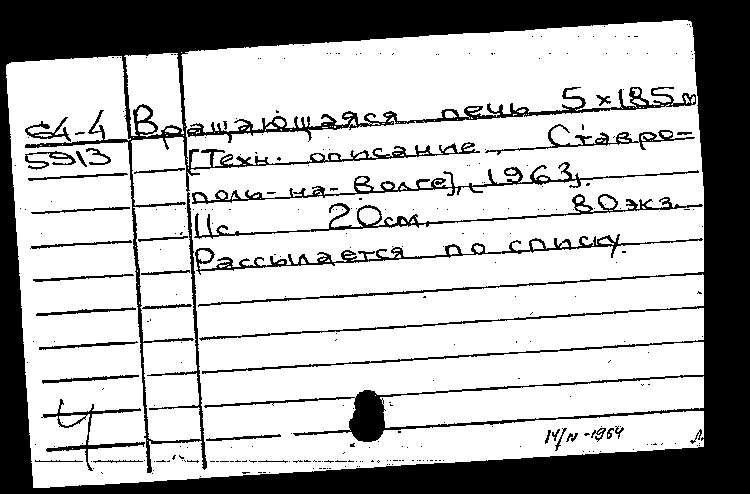 С4-4 Вращающаяся печь 5×185 м
5913 [Техн. описание. Ставро=
поль-на-Волге], [1963].
11с. 20см. 80экз.
Рассылается по списку.
Ч
14/IV-1964